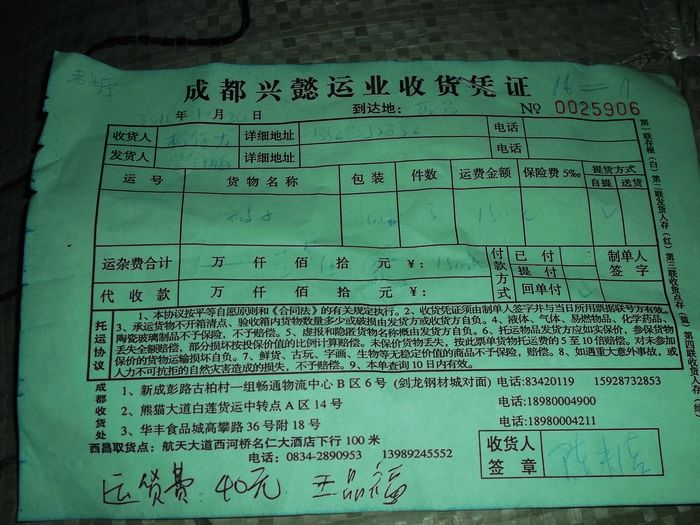 成都兴懿运业收货凭证
16-11
年 1 月 20 日 到达地： № 0025906
收货人 详细地址 电话
发货人 详细地址 电话
运号 货物名称 包装 件数 运费金额 保险费5‰ 提货方式
自提 送货
3 150元
运杂费合计 万 仟 佰 拾 元 ¥： 付款方式 已付 制单人签字
提付
代收款 万 仟 佰 拾 元 ¥： 回单付
第一联存根(白)第二联发货人存(红)第三联收货点存(蓝)第四联收货人存
托运协议
1、本协议按平等自愿原则和《合同法》的有关规定执行。2、收货凭证须由制单人签字并与当日所用票据联号方有效。
3、承运货物不开箱清点、验收箱内货物数量多少或破损由发货方或收货方自负。4、液体、气体、易燃物品、化学药品、
陶瓷玻璃制品不予保险，不予赔偿。5、虚报和隐匿货物名称概由发货方自负。6、托运物品发货方应如实保价，参保货物
丢失全额赔偿，部分损坏按投保价值的比例计算赔偿。未保价货物丢失，按此票单货物托运费的5至10倍赔偿。对未参加
保价的货物运输损坏自负。7、鲜货、古玩、字画、生物等无稳定价值的商品不予保险，赔偿。8、如遇重大意外事故，或
人力不可抗拒的自然灾害造成的损失，不予赔偿。9、本单查询10日内有效。
成都收货处
1、新成彭路古柏村一组畅通物流中心B区6号(剑龙钢材城对面) 电话:83420119 15928732853
2、熊猫大道白莲货运中转点A区14号 电话:18980004900
3、华丰食品城高攀路36号附18号 电话:18980004211
西昌取货点：航天大道西河桥名仁大酒店下行100米
电话：0834-2890953 13989245552
收货人签章
运货费：40元 王品福